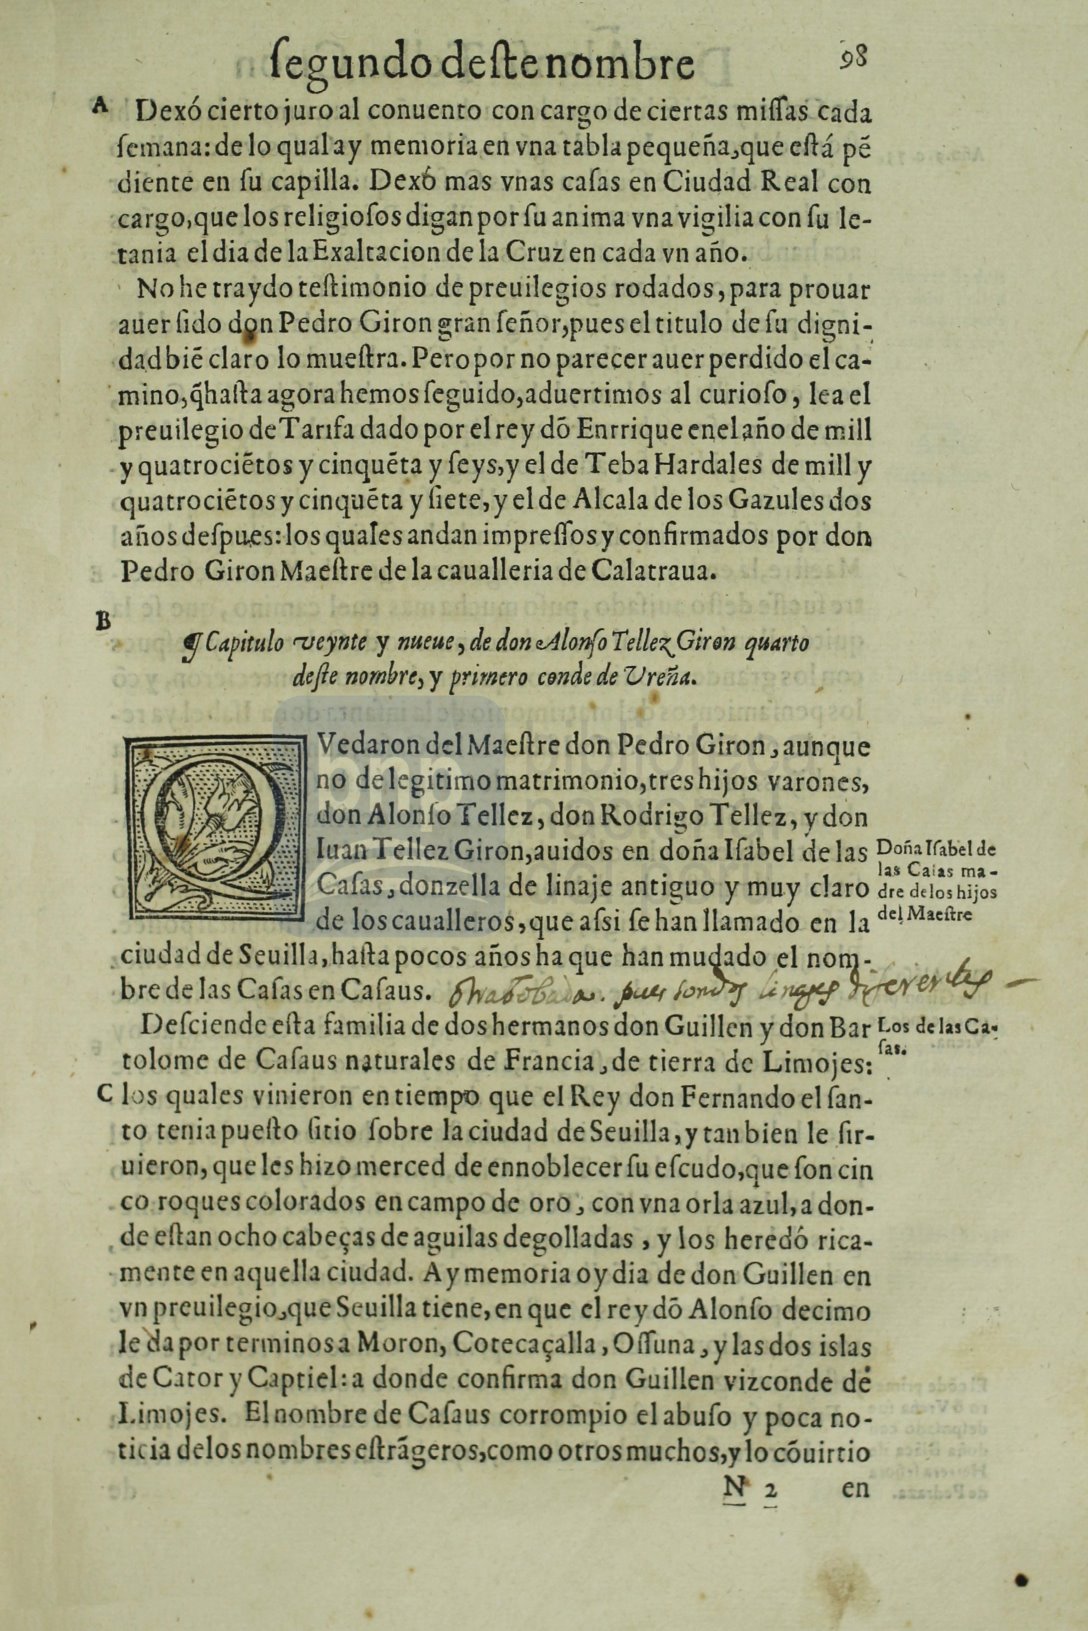 ſegundo deſte nombre
98
A Dexó cierto juro al conuento con cargo de ciertas miſſas cada
ſemana: de lo qual ay memoria en vna tabla pequeña, que eſtá pẽ
diente en ſu capilla. Dexó mas vnas caſas en Ciudad Real con
cargo, que los religioſos digan por ſu anima vna vigilia con ſu le-
tania el dia de la Exaltacion de la Cruz en cada vn año.
No he traydo teſtimonio de preuilegios rodados, para prouar
auer ſido don Pedro Giron gran ſeñor, pues el titulo de ſu digni-
dad biẽ claro lo mueſtra. Pero por no parecer auer perdido el ca-
mino, q̃ haſta agora hemos ſeguido, aduertimos al curioſo, lea el
preuilegio de Tarifa dado por el rey dõ Enrrique en el año de mill
y quatrociẽtos y cinquẽta y ſeys, y el de Teba Hardales de mill y
quatrociẽtos y cinquẽta y ſiete, y el de Alcala de los Gazules dos
años deſpues: los quales andan impreſſos y confirmados por don
Pedro Giron Maeſtre de la caualleria de Calatraua.
B
¶ Capitulo veynte y nueue, de don Alonſo Tellez Giron quarto
deſte nombre, y primero conde de Vreña.
QVedaron del Maeſtre don Pedro Giron, aunque
no de legitimo matrimonio, tres hijos varones,
don Alonſo Tellez, don Rodrigo Tellez, y don
Iuan Tellez Giron, auidos en doña Iſabel de las
Caſas, donzella de linaje antiguo y muy claro
de los caualleros, que aſsi ſe han llamado en la
Doña Iſabel de
las Caſas ma-
dre de los hijos
del Maeſtre
ciudad de Seuilla, haſta pocos años ha que han mudado el nom-
bre de las Caſas en Caſaus. pues son dos linages diferentes
Deſciende eſta familia de dos hermanos don Guillen y don Bar
Los de las Ca-
ſas.
tolome de Caſaus naturales de Francia, de tierra de Limojes:
C los quales vinieron en tiempo que el Rey don Fernando el ſan-
to tenia pueſto ſitio ſobre la ciudad de Seuilla, y tan bien le ſir-
uieron, que les hizo merced de ennoblecer ſu eſcudo, que ſon cin
co roques colorados en campo de oro, con vna orla azul, a don-
de eſtan ocho cabeças de aguilas degolladas, y los heredó rica-
mente en aquella ciudad. Ay memoria oy dia de don Guillen en
vn preuilegio, que Seuilla tiene, en que el rey dõ Alonſo decimo
le da por terminos a Moron, Cotecaçalla, Oſſuna, y las dos islas
de Cator y Captiel: a donde confirma don Guillen vizconde de
Limojes. El nombre de Caſaus corrompio el abuſo y poca no-
ticia de los nombres eſtrãgeros, como otros muchos, y lo cõuirtio
N 2 en